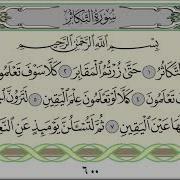 سُورَةُ التَّكَاثُرِ
بِسْمِ اللَّهِ الرَّحْمَٰنِ الرَّحِيمِ
التَّكَاثُرُ ١ حَتَّىٰ زُرْتُمُ الْمَقَابِرَ ٢ كَلَّا سَوْفَ تَعْلَمُونَ
تَعْلَمُونَ ٤ كَلَّا لَوْ تَعْلَمُونَ عِلْمَ الْيَقِينِ ٥ لَتَرَوُنَّ
هَا عَيْنَ الْيَقِينِ ٧ ثُمَّ لَتُسْأَلُنَّ يَوْمَئِذٍ عَنِ
٦٠٠